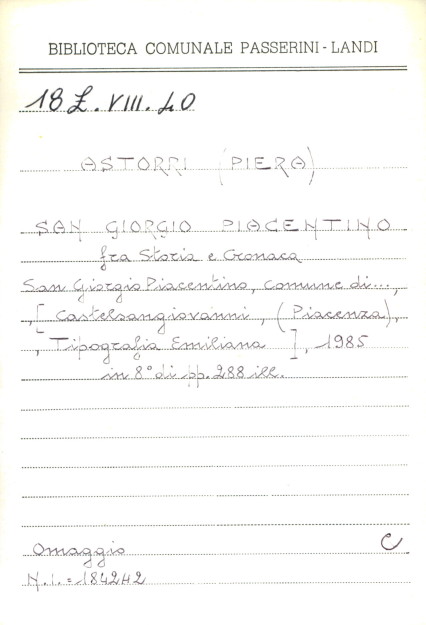 BIBLIOTECA COMUNALE PASSERINI - LANDI
18 Z. VIII. 40
ASTORRI (PIERA)
SAN GIORGIO PIACENTINO
fra Storia e Cronaca
San Giorgio Piacentino, Comune di...,
,[ Castelsangiovanni, (Piacenza),
, Tipografia Emiliana ], 1985
in 8° di pp. 288 ill.
Omaggio
C
N. i. = 184242